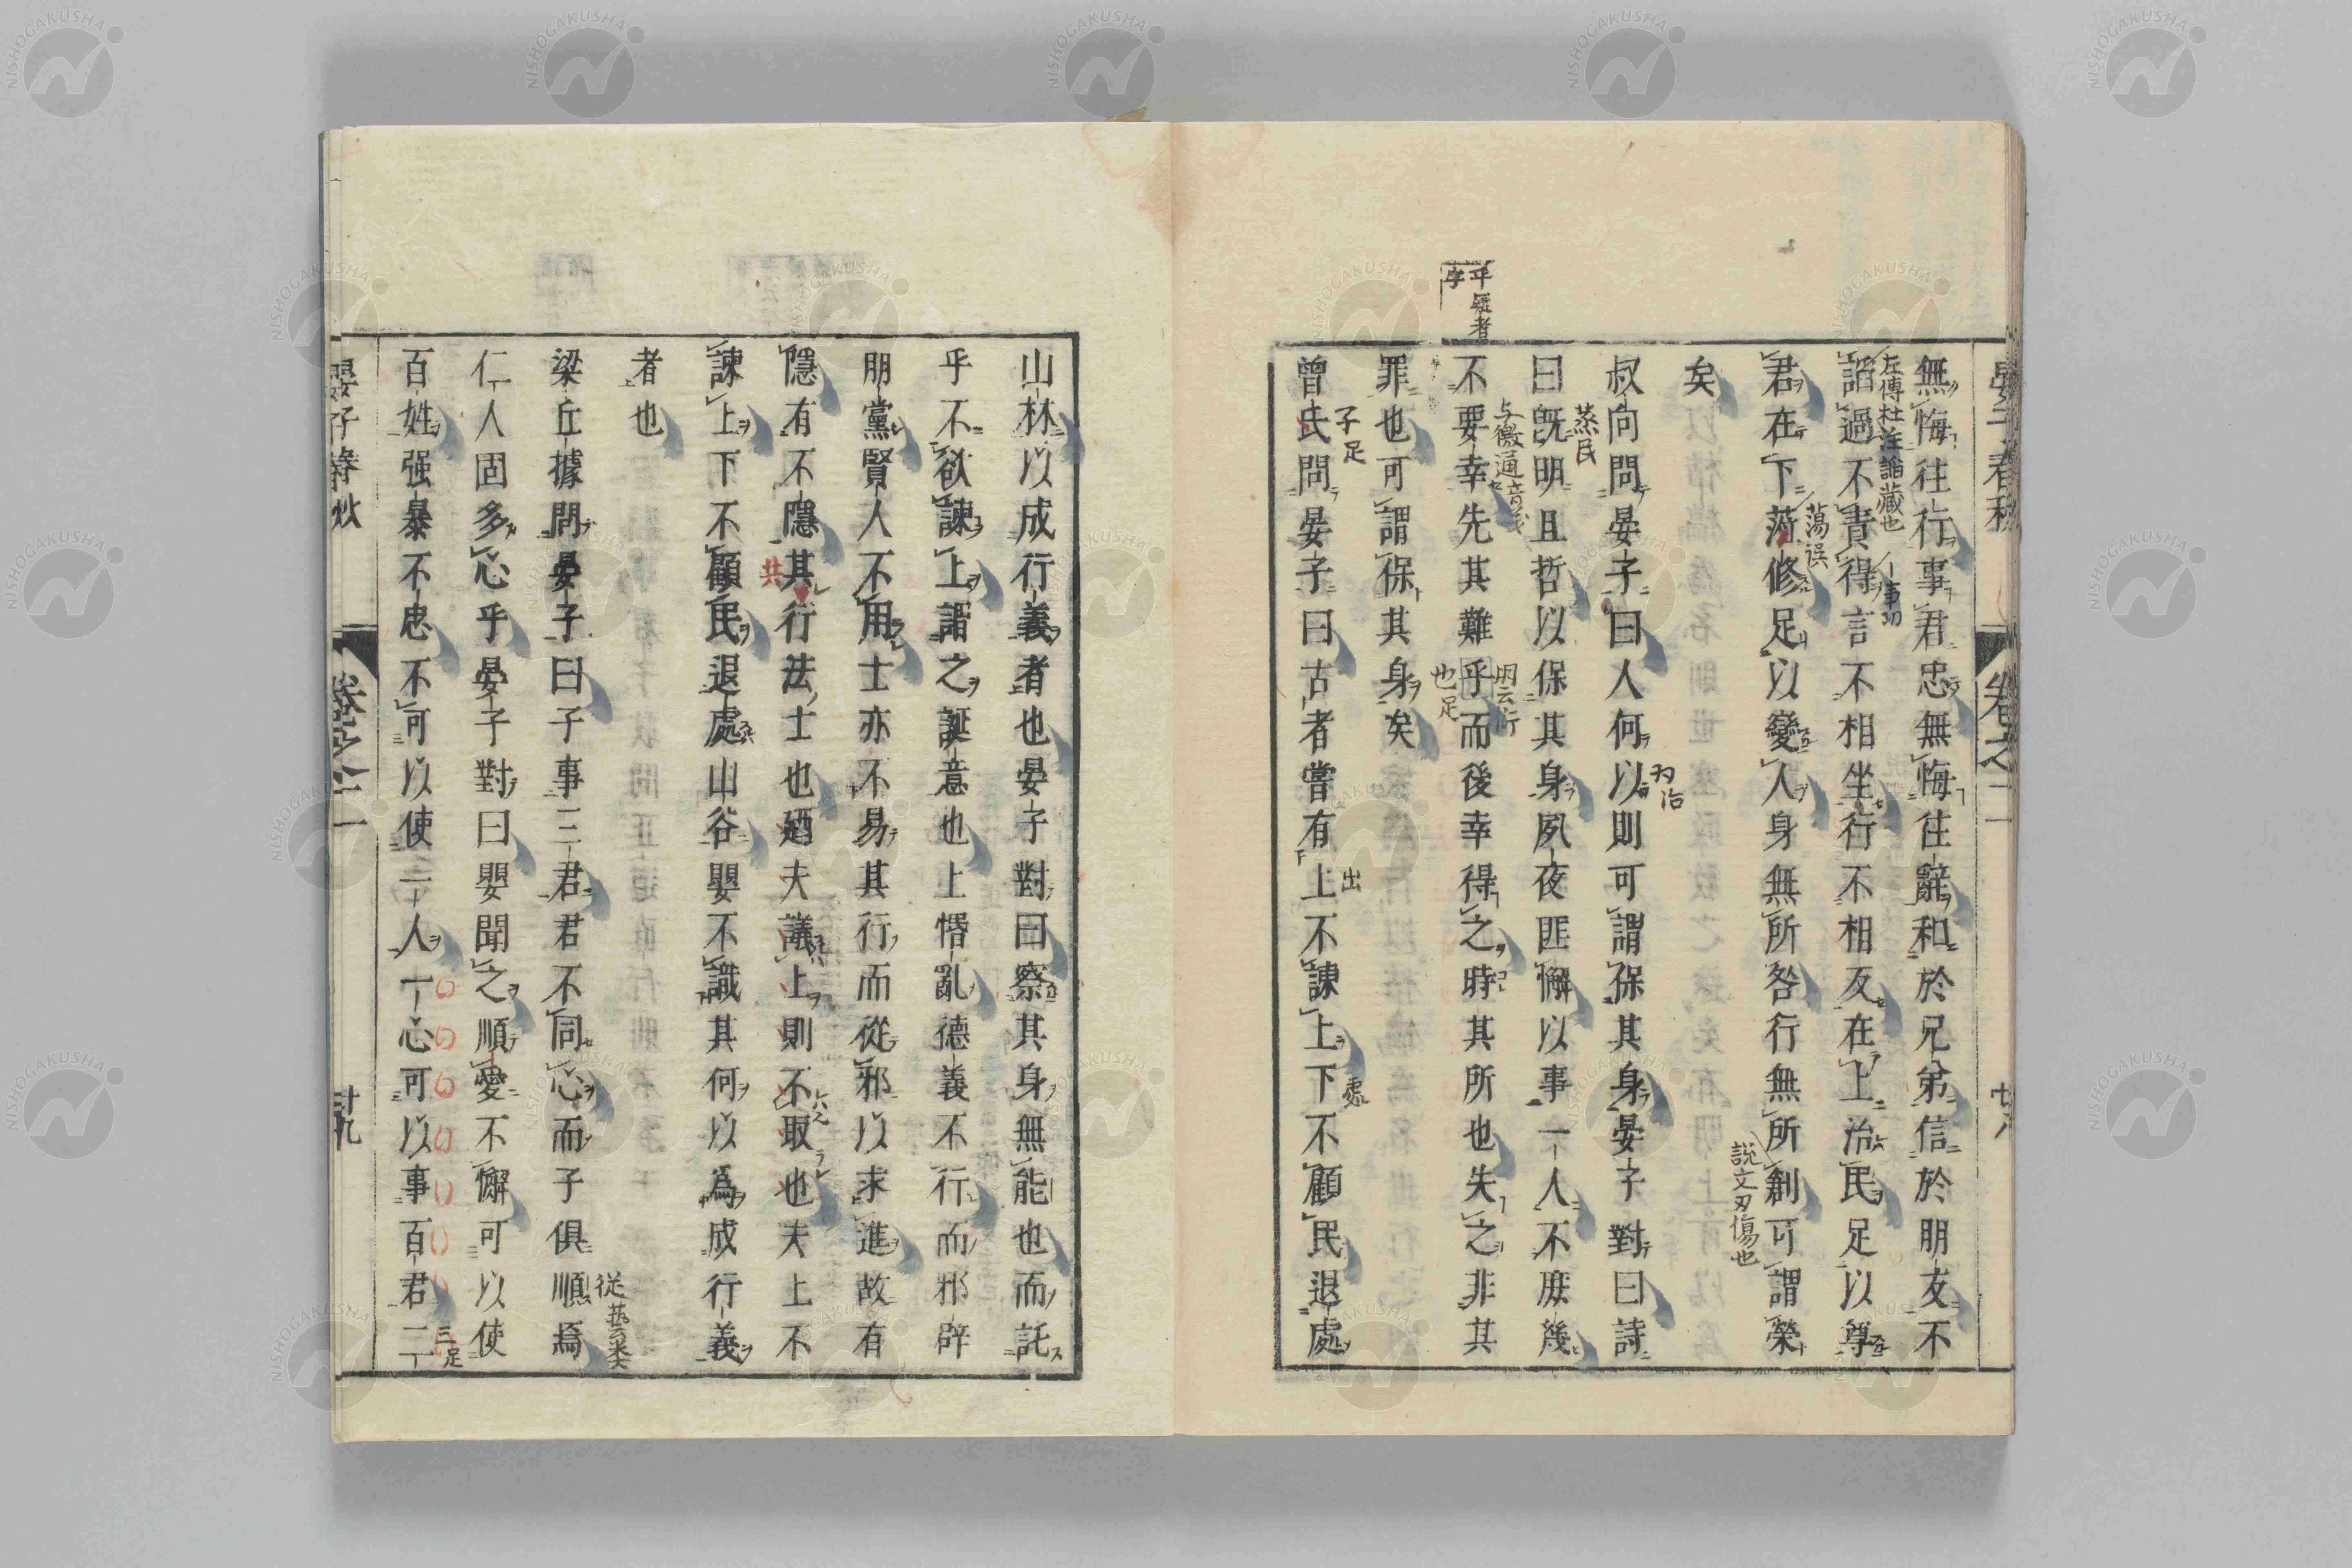 無悔往行事君忠無悔往辭和於兄弟信於朋友不
謟過不責得言不相坐行不相反在上治民足以尊
君在下莅修足以變人身無所咎行無所創可謂榮
矣
叔向問晏子曰人何以則可謂保其身晏子對曰詩
曰既明且哲以保其身夙夜匪懈以事一人不庶幾
不要幸先其難乎而後幸得之時其所也失之非其
罪也可謂保其身矣
曾氏問晏子曰古者嘗有上不諫上下不顧民退處
山林以成行義者也晏子對曰察其身無能也而託
乎不欲諫上謂之誕意也上惛亂德義不行而邪辟
朋黨賢人不用士亦不易其行而從邪以求進故有
隱有不隱其行法士也廼夫議上則不取也夫上不
諫上下不顧民退處山谷嬰不識其何以為成行義
者也
梁丘據問晏子曰子事三君君不同心而子俱順焉
仁人固多心乎晏子對曰嬰聞之順愛不懈可以使
百姓强暴不忠不可以使一人一心可以事百君二
晏子春秋
卷之二
廿八
晏子春秋
卷之二
廿九
左傳杜注謟藏也
事功
蕩誤
説文刃傷也
为治
蒸民
与徼通音
平疑者字
也足
子足
出
處
共
從
三足